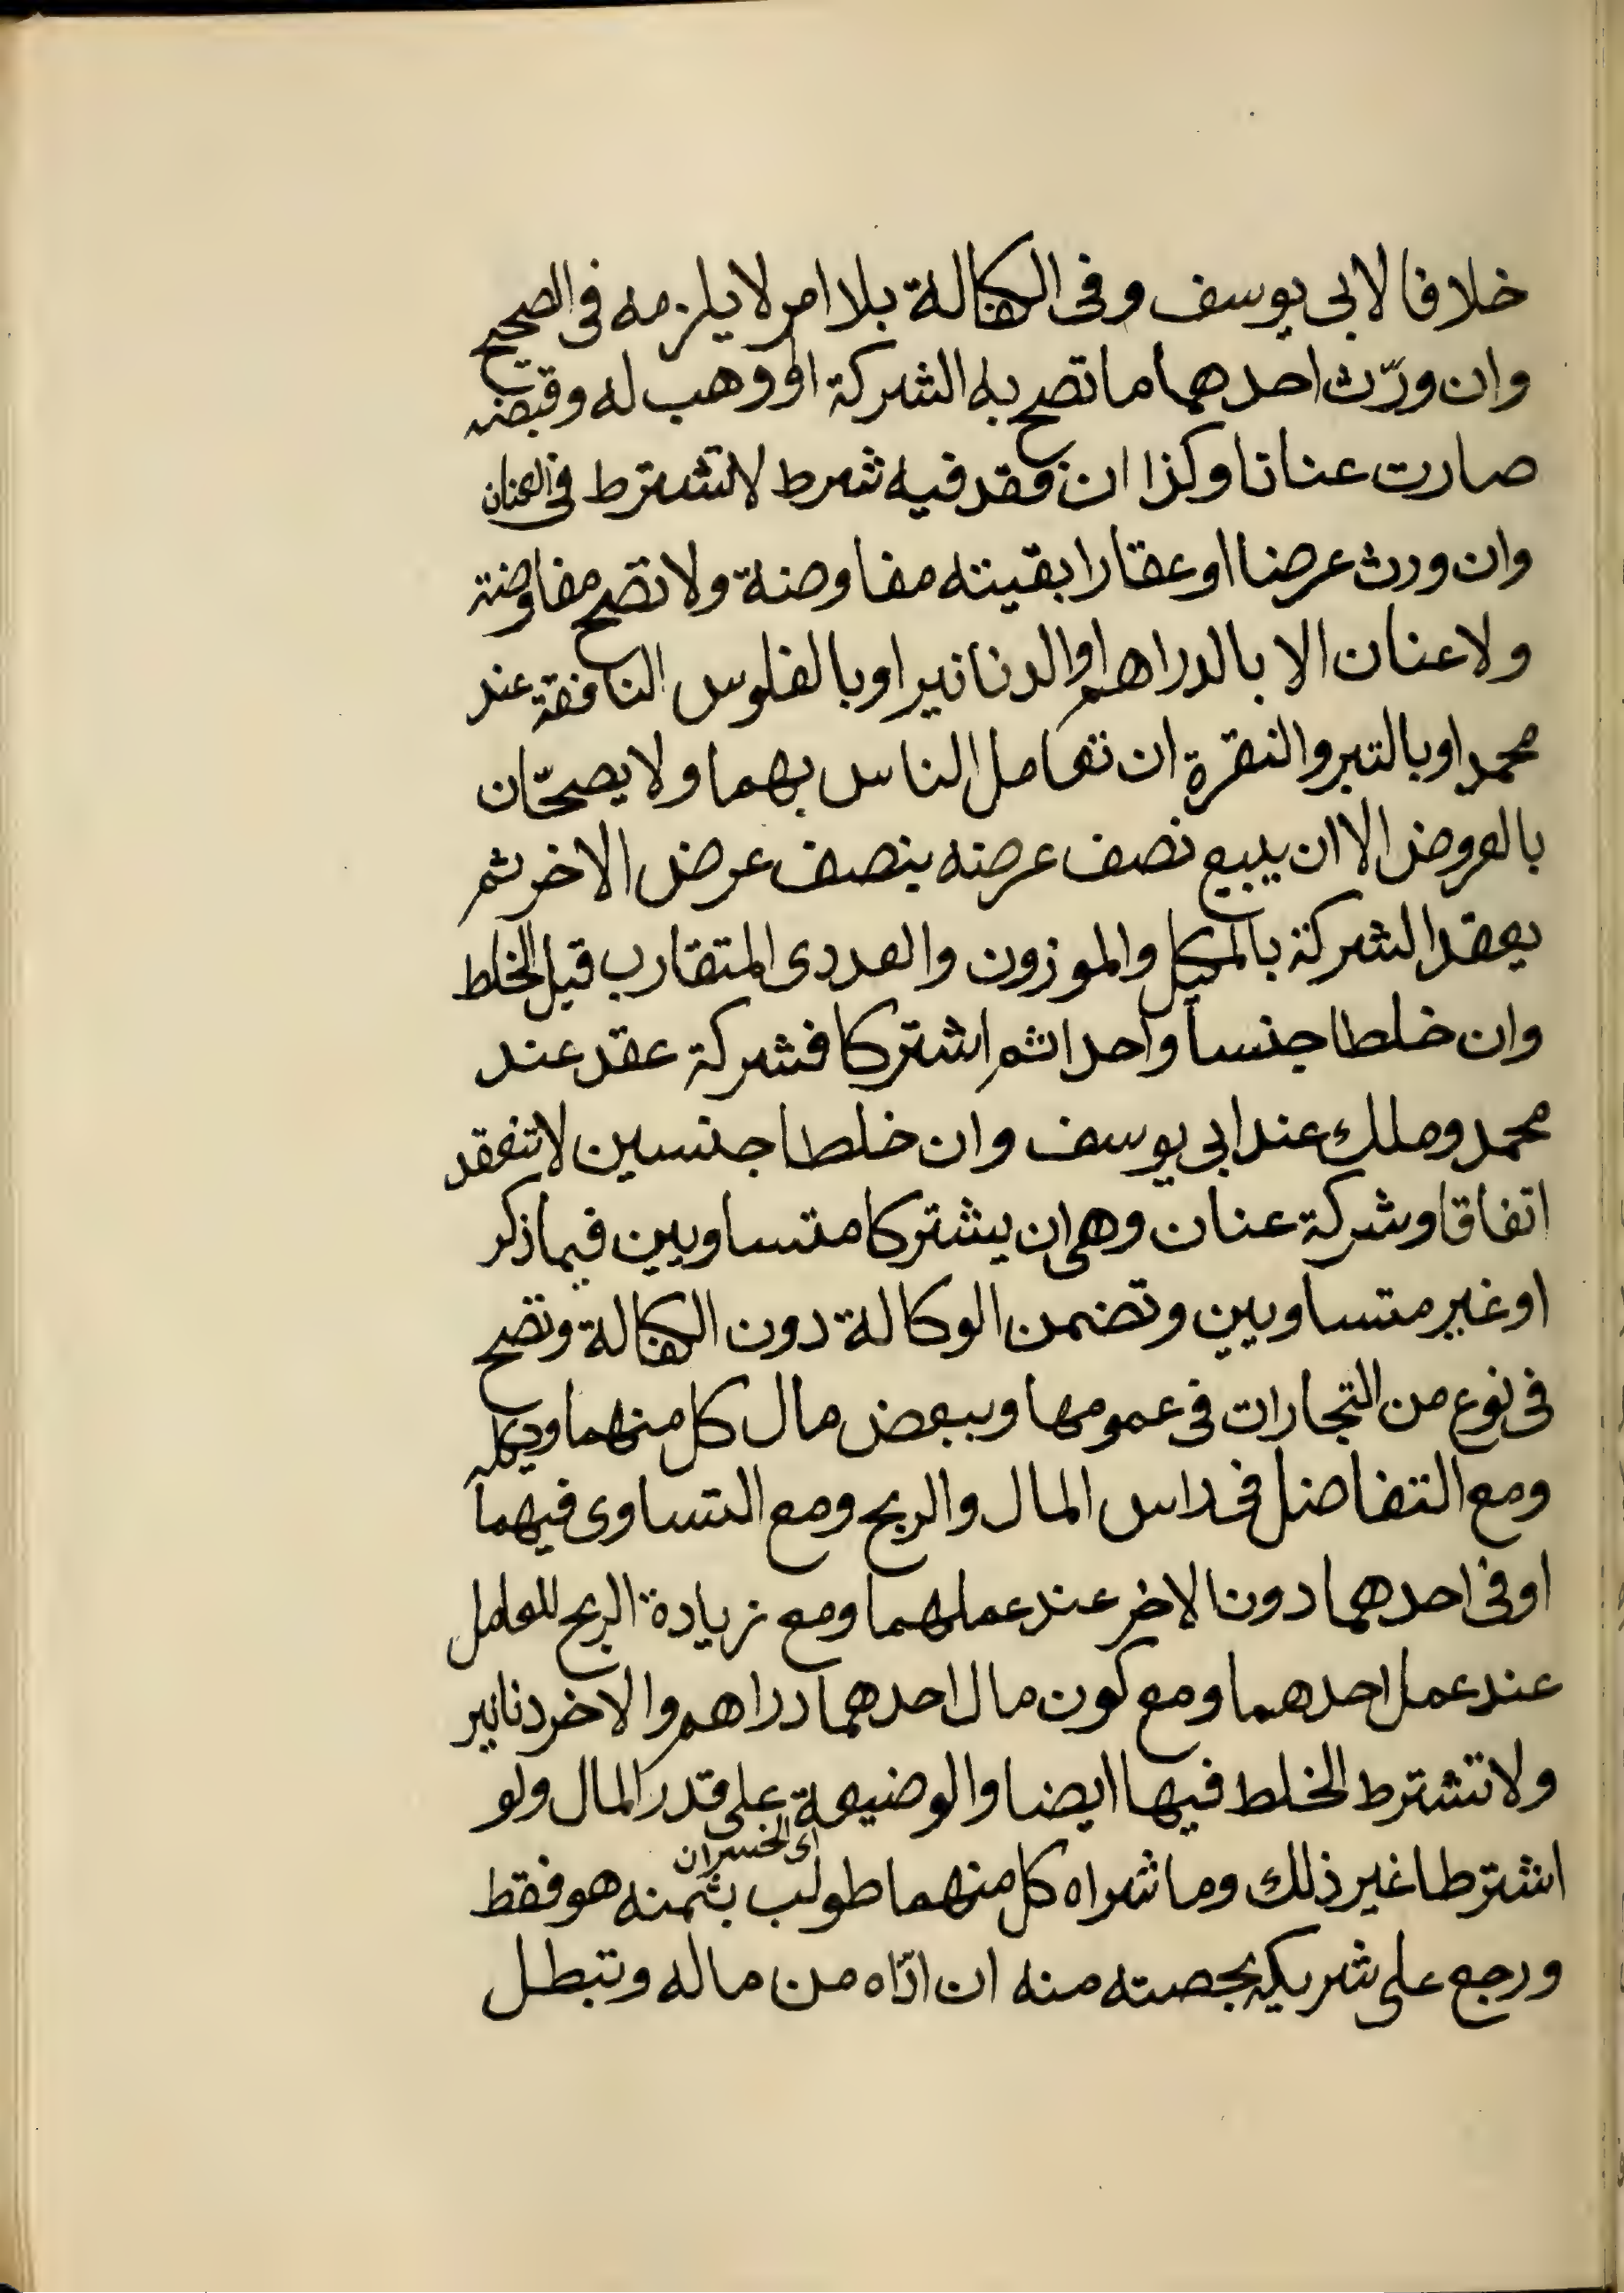 خلافا لابى يوسف وفى الكفالة بلا امر لا يلزمه فى الصحيح
وان ورّث احدهما ما تصح به الشركة او وهب له وقبضه
صارت عنانا وكذا ان فقد فيه شرط لا تشترط فى العنان
وان ورث عرضا او عقارا بقيته مفاوضة ولا تصح مفاوضة
ولا عنان الا بالدراهم او الدنانير او بالفلوس النافقة عند
محمد او بالتبر والنقرة ان تعامل الناس بهما ولا يصحّان
بالعروض الا ان يبيع نصف عرضه بنصف عرض الاخر ثم
يعقد الشركة بالمكيل والموزون والعددى المتقارب قبل الخلط
وان خلطا جنسا واحدا ثم اشتركا فشركة عقد عند
محمد وملك عند ابى يوسف وان خلطا جنسين لا تنعقد
اتفاقا وشركة عنان وهى ان يشتركا متساويين فيما ذكر
او غير متساويين وتضمن الوكالة دون الكفالة وتصح
فى نوع من التجارات فى عمومها وببعض مال كل منهما وبكله
ومع التفاضل فى راس المال والربح ومع التساوى فيهما
او فى احدهما دون الاخر عند عملهما ومع زيادة الربح للعامل
عند عمل احدهما ومع كون مال احدهما دراهم والاخر دنانير
ولا تشترط الخلط فيها ايضا والوضيعة على قدر المال ولو
اى الخسران
اشترطا غير ذلك وما شراه كل منهما طولب بثمنه هو فقط
ورجع على شريكه بحصته منه ان ادّاه من ماله وتبطل